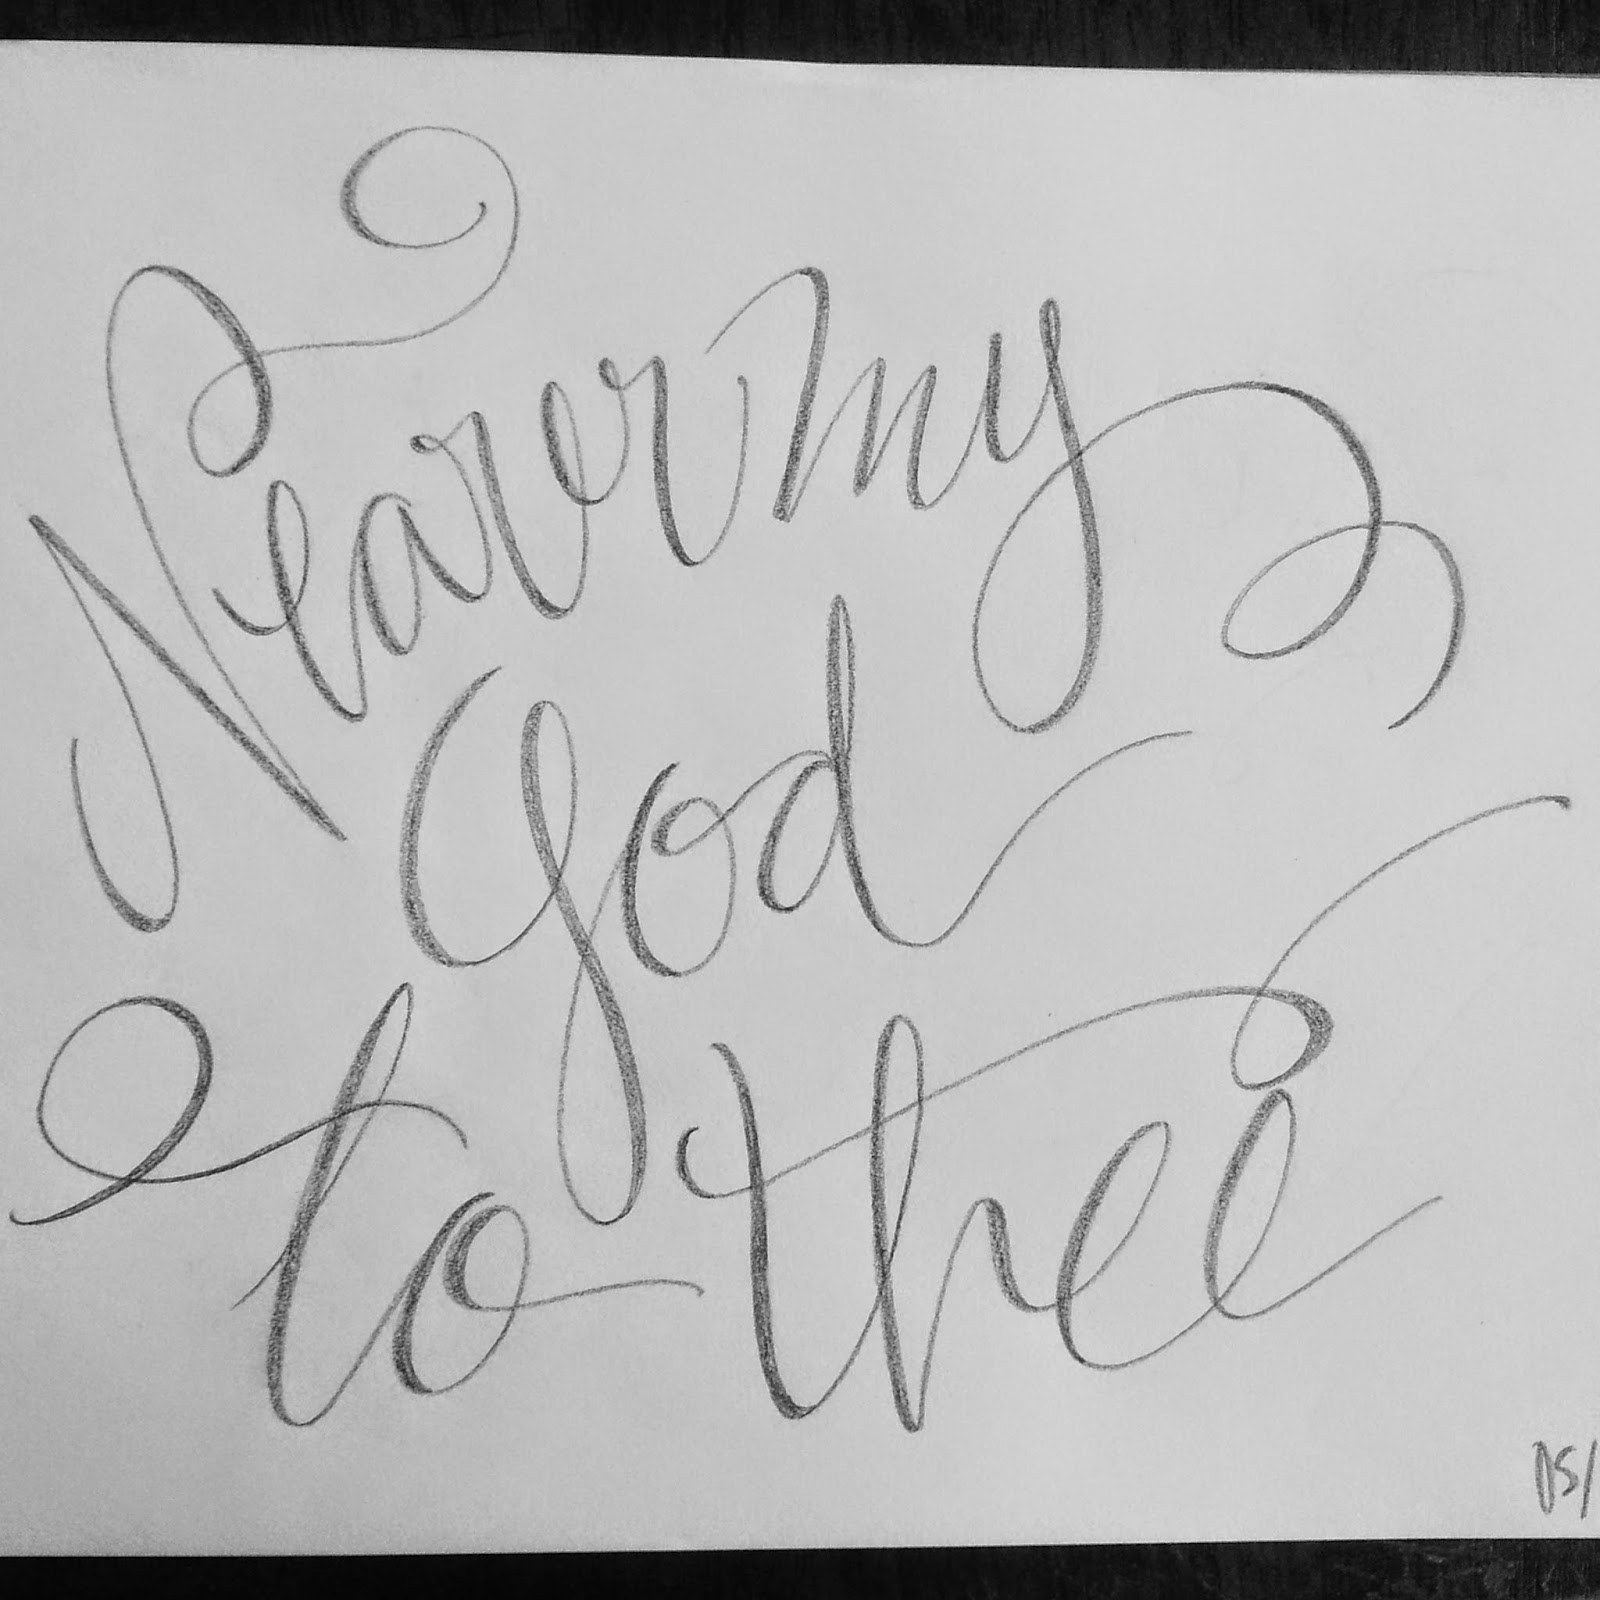 Nearer my
God
to thee
05/